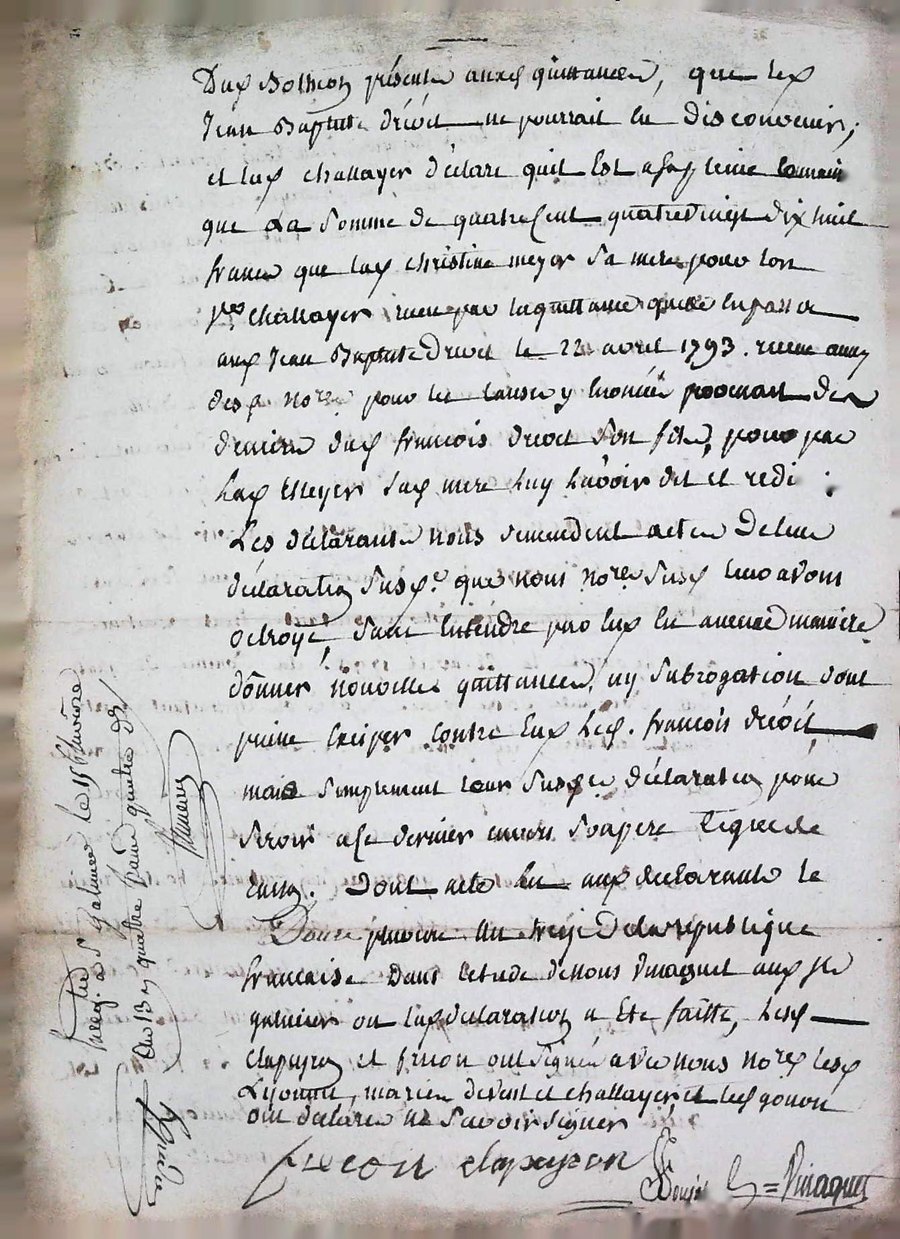 présente auxd quittances, que led
Jean Baptiste drevet ne pourrait en disconvenir;
et lad challayer déclare quil est a sa
que la somme de quatre cent quatrevingt dix huit
francs que lad christine meyer sa mere pour lors
ve challayer recu par la quittance quelle en passa
aud Jean Baptiste drevet le 22 avril 1793. recue aud
nore pour les causes y enoncée provenait des
deniers dud francois drevet son fils, pour
lad meyer sad mere luy avoir dit et redi :
Les déclarants nous demandent acte de leur
déclaration susd. que nous nore susd leur avons
octroyé, sans entendre par eux en aucune maniere
donner nouvelles quittances, ny subrogation dont
puisse exciper contre eux led. francois drevet
mais simplement leur susde déclaration pour
servir a ce dernier envers son pere
. Dont acte lu aux declarants le
Douze pluviose an treize de la republique
francaise Dans letude de nous Vinagnet aud st
galmier ou lad declaration a ete faitte, lesd
clapeyron et frecon ont signé avec nous nore lesd
Lyonnet, mariée drevet et challayer, et led gonon
ont déclaré ne savoir signer
frecon clapeyron Vinagnet
Enreg. a St galmier le 15 pluviose
an 13 quatre francs quatre